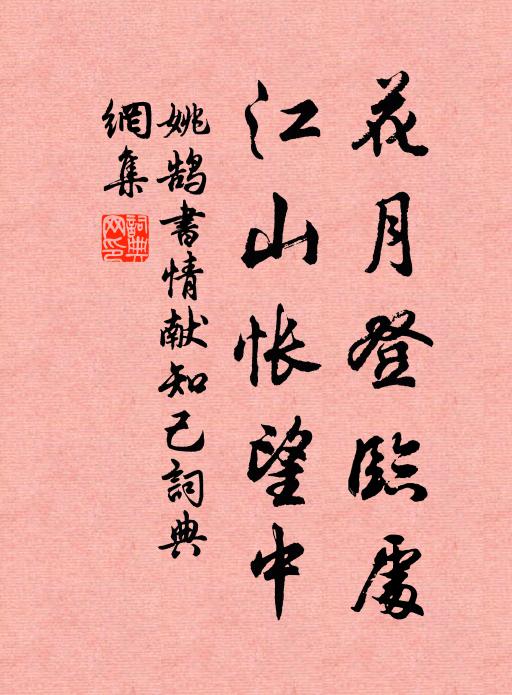 花月登臨處
江山悵望中
姚鵠書情献知己詞典
網集
詞典網印